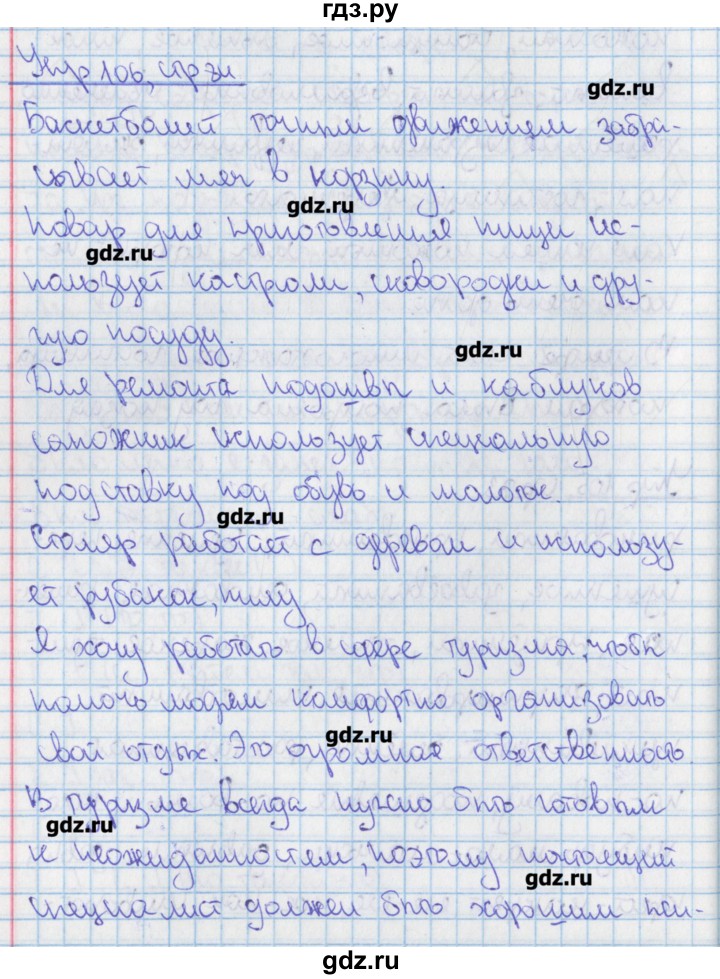 гдз.ру
Упр 106, стр 31
gdz.ru
Баскетболист точным движением забра-
сывает мяч в корзину.
gdz.ru
Повар для приготовления пищи ис-
gdz.ru
пользует кастрюли, сковородки и дру-
гую посуду.
gdz.ru
Для ремонта подошвы и каблуков
сапожник использует специальную
подставку под обувь и молоток.
gdz.ru
Столяр работает с деревом и использу-
ет рубанок, пилу
Я хочу работать в сфере туризма, чтобы
помочь людям комфортно организовать
gdz.ru
свой отдых. Это огромная ответственность.
В туризме всегда нужно быть готовым
gdz.ru
к неожиданностям, поэтому настоящий
gdz.ru
специалист должен быть хорошим пси-
gdz.ru